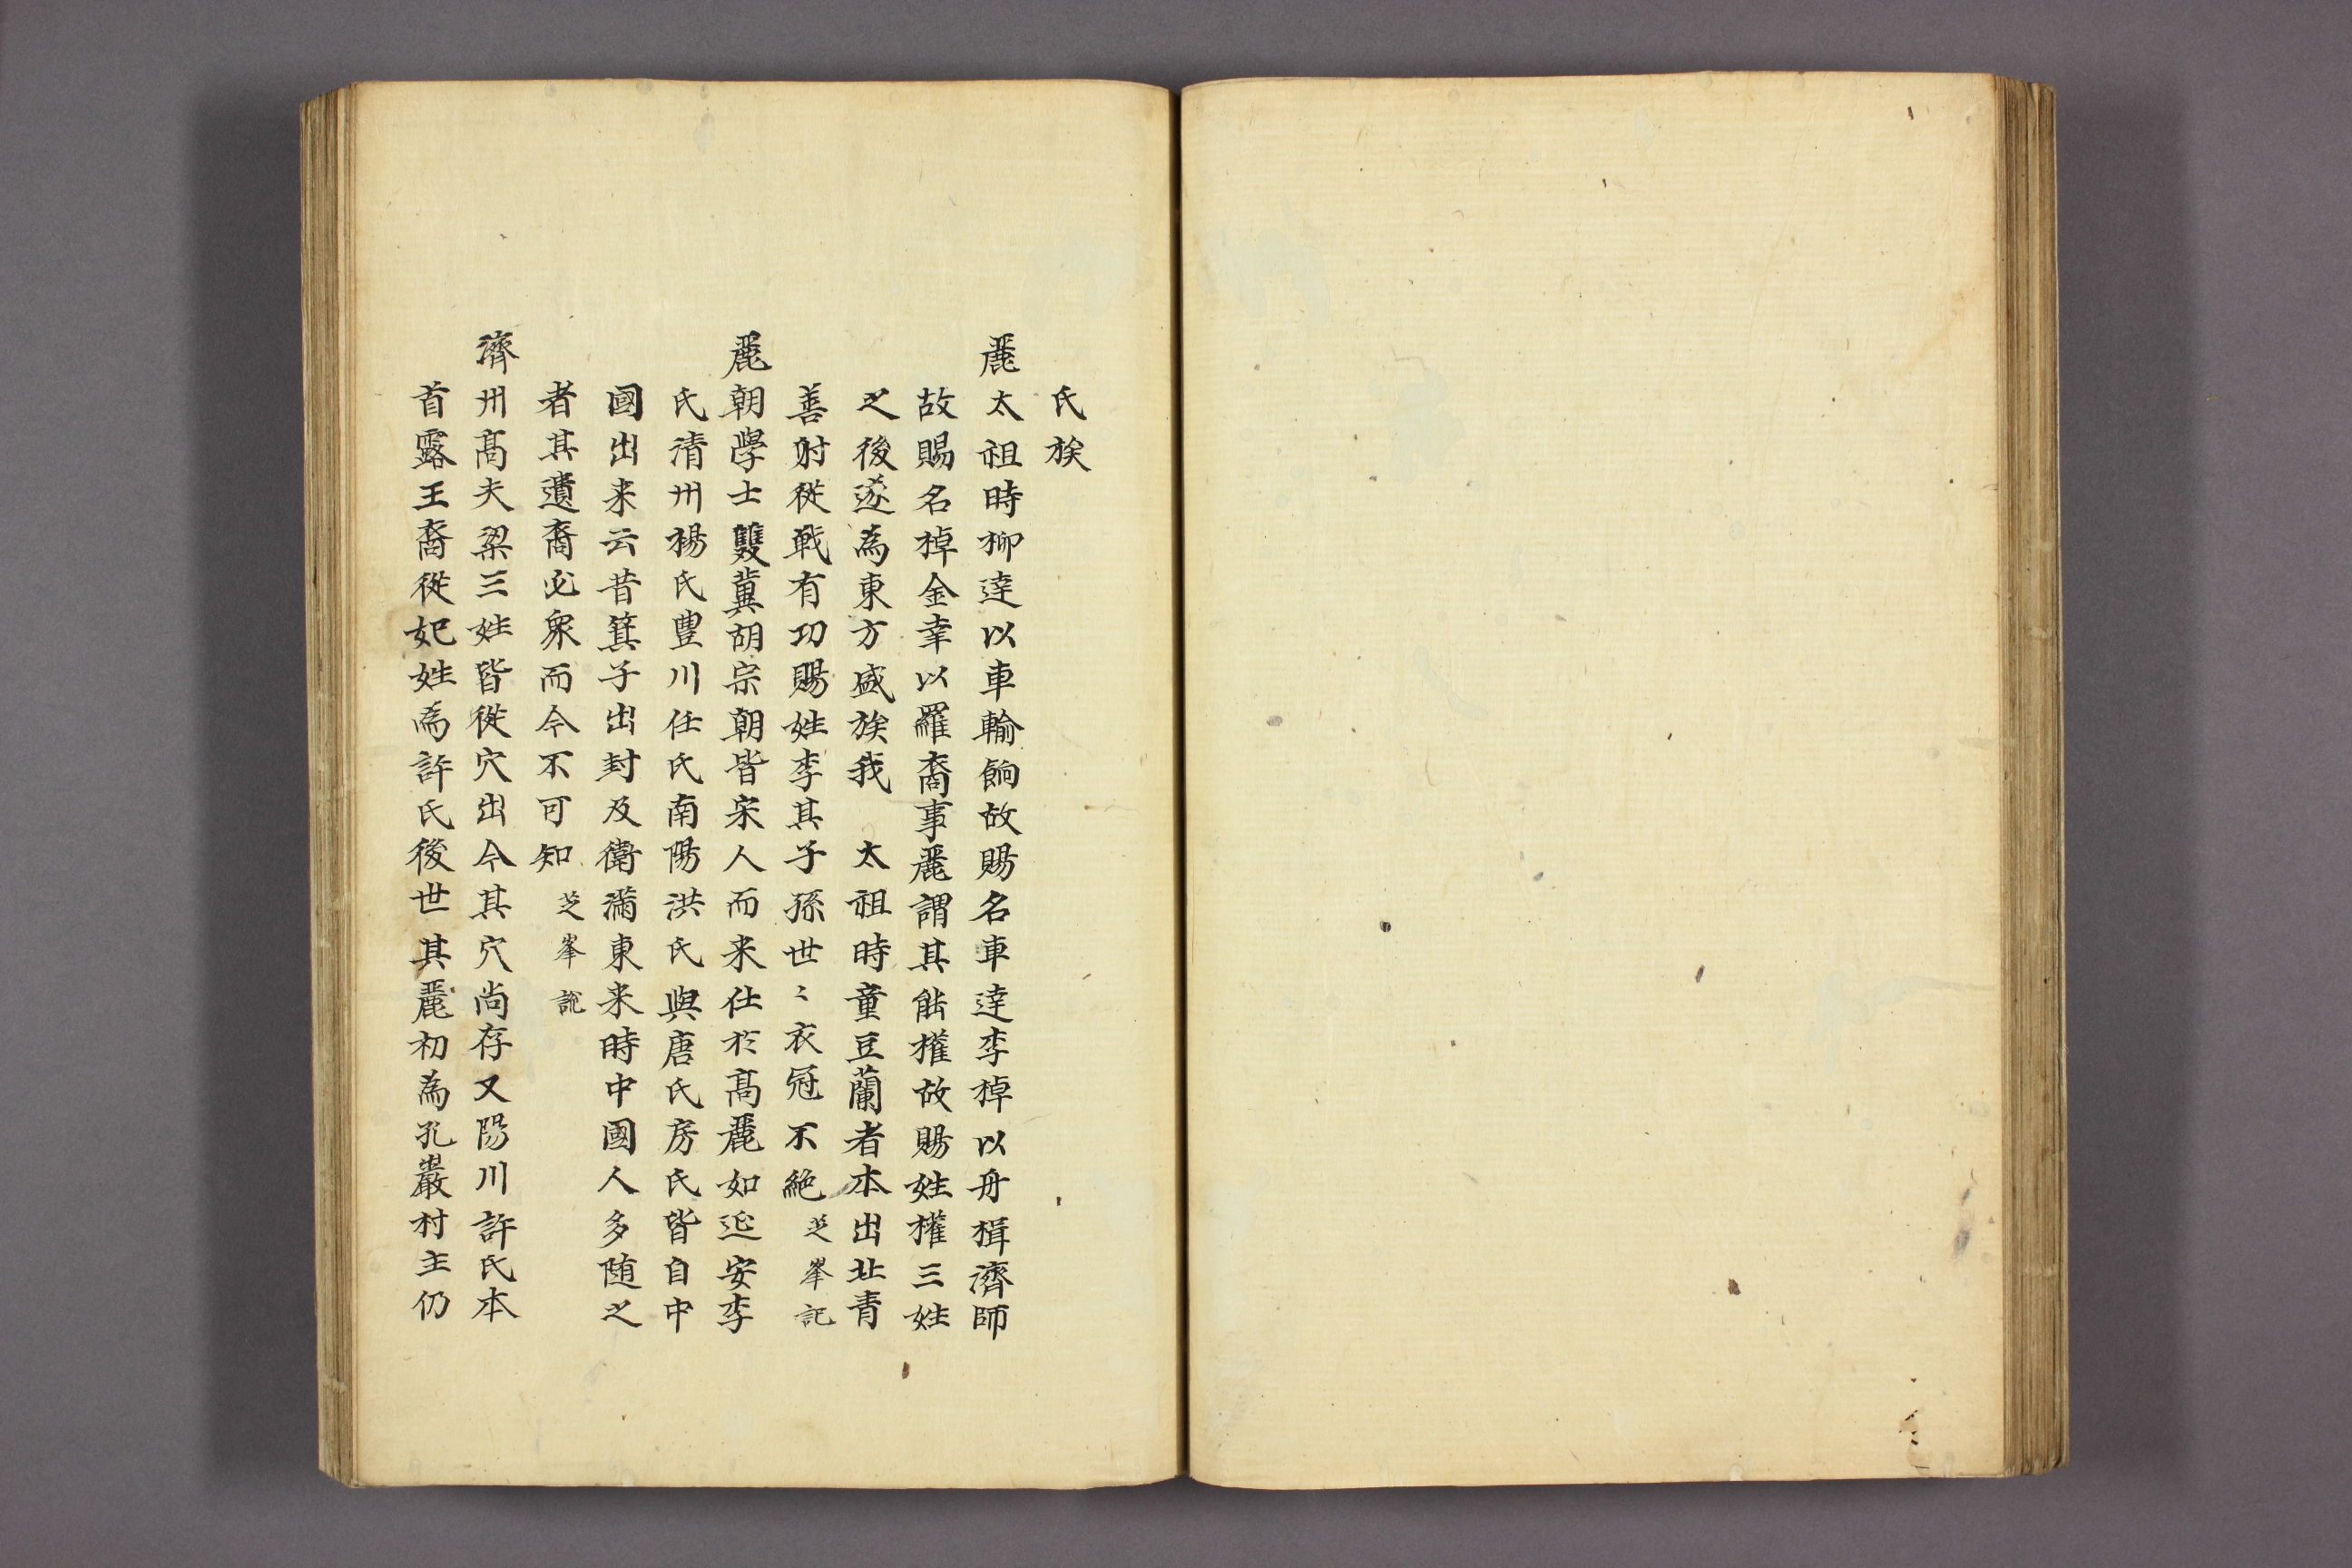 氏族
麗太祖時柳達以車輸餉故賜名車達李棹以舟楫濟師
故賜名棹金幸以羅裔事麗謂其能權故賜姓權三姓
之後遂為東方盛族我　太祖時童豆蘭者本出北青
善射從戰有功賜姓李其子孫世〻衣冠不絶芝峯記
麗朝學士雙冀胡宗朝皆宋人而来仕於高麗如延安李
氏清州楊氏豐川任氏南陽洪氏與唐氏房氏皆自中
國出来云昔箕子出封及衛滿東来時中國人多随之
者其遺裔必衆而今不可知芝峯說
濟州髙夫梁三姓皆從穴出今其穴尚存又陽川許氏本
首露王裔從妃姓為許氏後世其麗初為孔巖村主仍